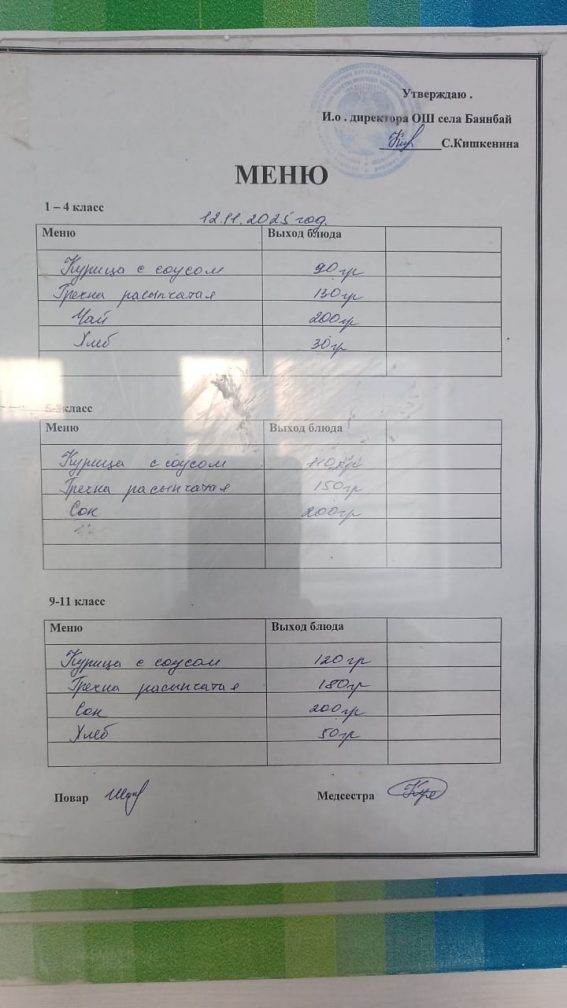 Утверждаю .
И.о . директора ОШ села Баянбай
С.Кишкенина
МЕНЮ
1 – 4 класс
12.11.2025 год
Меню Выход блюда
Курица с соусом 90 гр
Гречка расыпчатая 130 гр
Чай 200 гр
Хлеб 30 гр
класс
Меню Выход блюда
Курица с соусом 110 гр
Гречка расыпчатая 150 гр
Сок 200 гр
9-11 класс
Меню Выход блюда
Курица с соусом 120 гр
Гречка расыпчатая 180 гр
Сок 200 гр
Хлеб 50 гр
Повар Медсестра